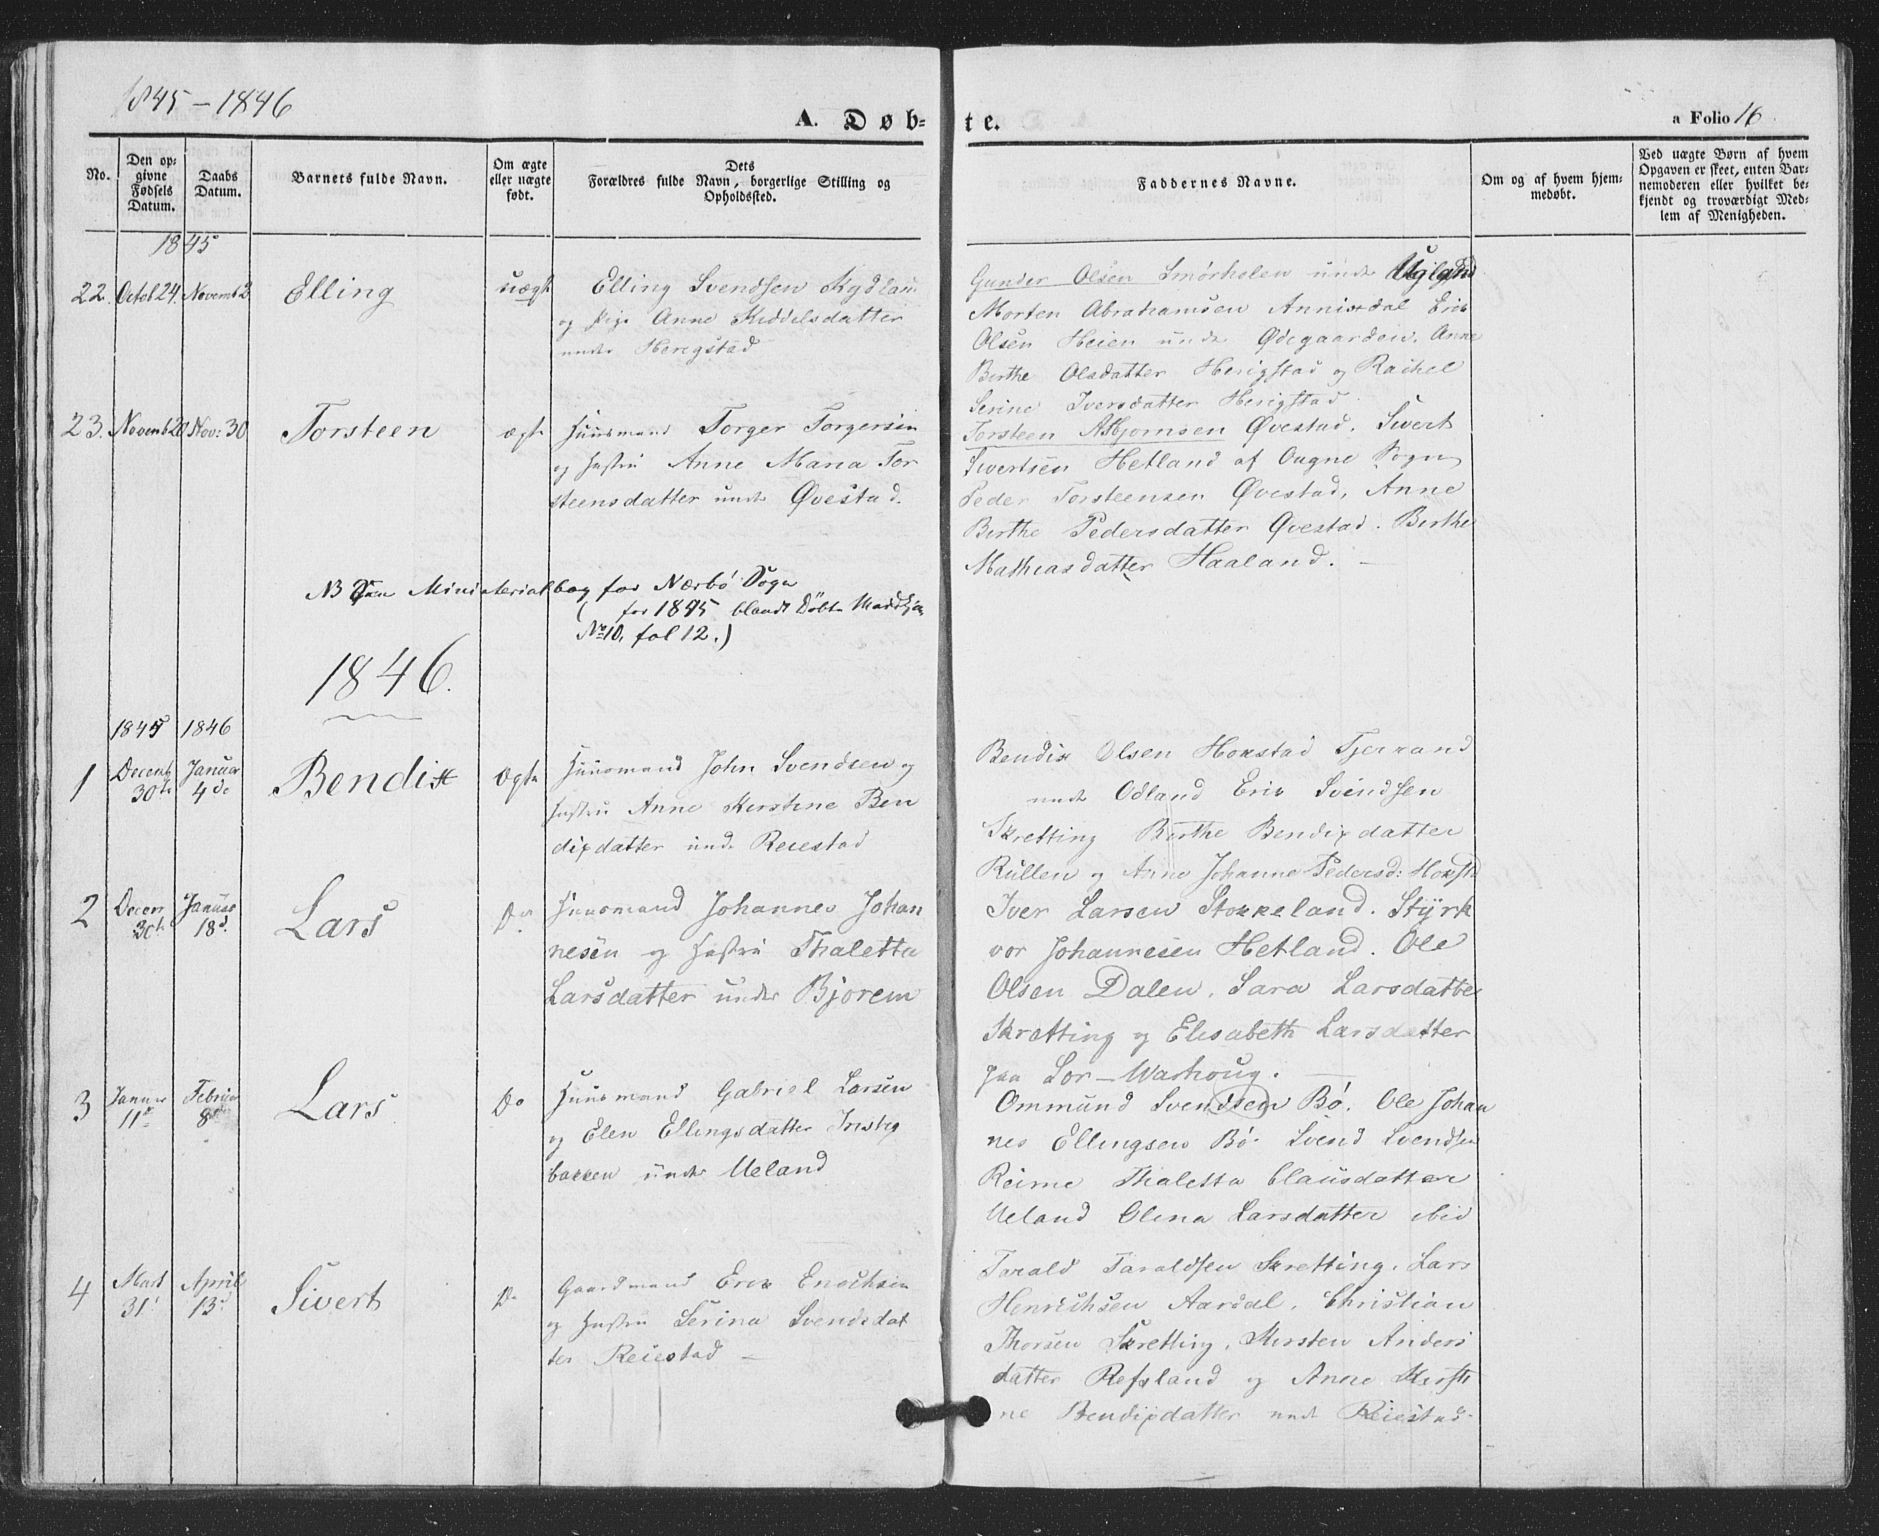 1845 – 1846
A. Døb=
te.
a Folio 16
No.
Den op=
givne
Fødsels
Datum.
Daabs
Datum.
Barnets fulde Navn.
Om ægte
eller uægte
født.
Dets
Forældres fulde Navn, borgerlige Stilling og
Opholdssted.
Faddernes Navne.
Om og af hvem hjem=
medøbt.
Ved uægte Børn af hvem
Opgaven er skeet, enten Bar=
nemoderen eller hvilket be=
kjendt og troværdigt Med=
lem af Menigheden.
1845
22. Octob 24. Novemb 2 Elling uægte Elling Svendsen Kydland
og Pige Anne Kiddelsdatter
under Herigstad
Gunder Olsen Smørholen under
Morten Abrahamsen Annisdal Erik
Olsen Heien under Ødegaarden, Anne
Berthe Olsdatter Herigstad og Rachel
Serine Iversdatter Herigstad
23. Novemb 20 Nov: 30 Torsteen ægte Huusmand Torger Torgersen
og Hustru Anne Maria Tor
steensdatter under Øvestad.
Torsteen Asbjornsen Øvestad. Sivert
Sivertsen Hetland af Ougne Sogn
Peder Torsteensen Øvestad, Anne
Berthe Pedersdatter Øvestad. Berthe
Mathiasdatter Haaland. –
NB Ministerialbog for Nærbö Sogn
( for 1845 blandt Döbte Mandkjøn
No 10, fol 12.)
1846.
1845 1846
1 Decemb
30te Januar
4de Bendix Ægte Huusmand John Svendsen og
Hustru Anne Kirstine Ben
dixdatter under Reiestad
Bendix Olsen Hoxstad Tjerrand
under Odland Erik Svendsen
Skretting Berthe Bendixdatter
Rullen og Anne Johanne Pedersd: Hoxst
2 Decem
30te Januar
18d. Lars Do Huusmand Johannes Johan
nesen og Hustru Thaletta
Larsdatter under Bjorem
Iver Larsen Stokkeland. Styrk
vor Johannesen Hetland. Ole
Olsen Dalen, Sara Larsdatter
Skretting og Elisabeth Larsdatter
paa Sor – Warhoug.
3 Januar
11te Februar
8de Lars Do Huusmand Gabriel Larsen
og Elen Ellingsdatter
bakken under Ueland
Ommund Svendsen Bö. Ole Johan
nes Ellingsen Bö. Svend Svendsen
Reime Thaletta Clausdatter
Ueland Olena Larsdatter ibid
4 Mart
31t April
13d Sivert Do Gaardmand Erik Enochsen
og Hustru Serina Svendsdat
ter Reiestad –
Tarald Taraldsen Skretting. Lars
Henrichsen Aardal, Christian
Thorsen Skretting, Kirsten Anders
datter Refsland og Anne Kirsti
ne Bendixdatter under Reiestad